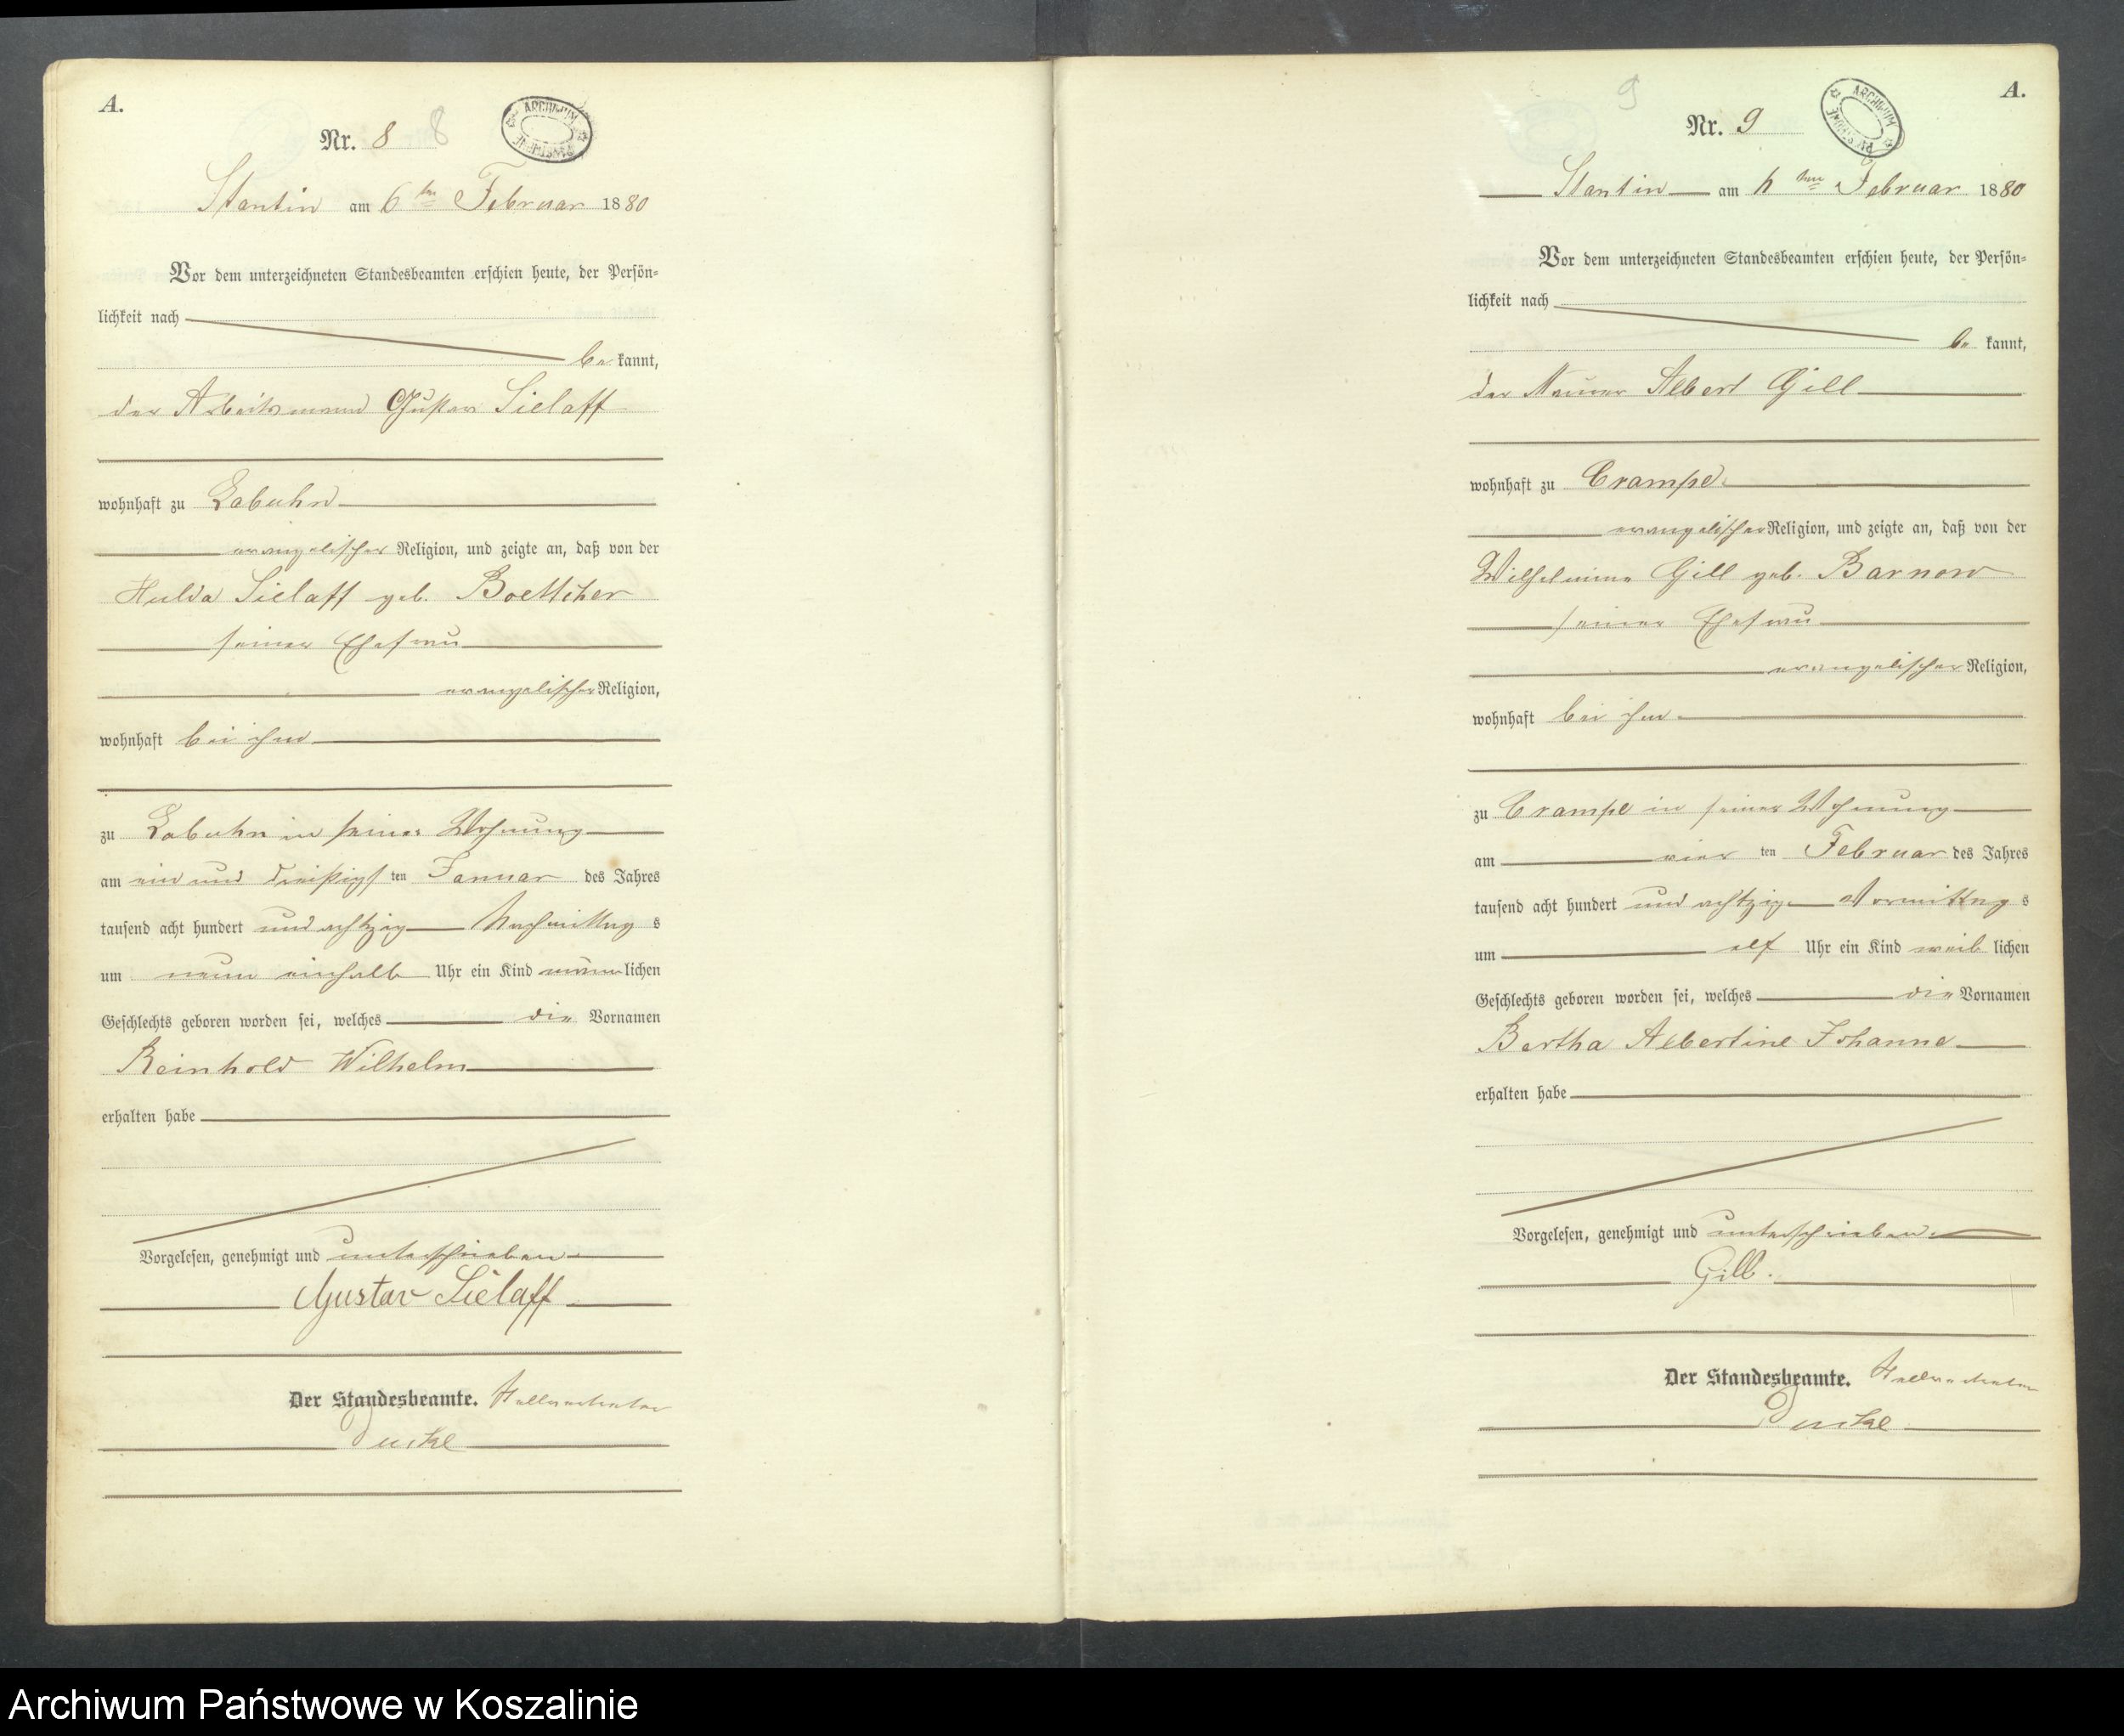 A.
Nr. 8 8
ARCHIWUM
Stantin am 6ten Februar 1880
Vor dem unterzeichneten Standesbeamten erschien heute, der Persön=
lichkeit nach
be kannt,
der Arbeitsmann Gustav Sielaff
wohnhaft zu Labuhn
evangelischer Religion, und zeigte an, daß von der
Hulda Sielaff geb. Boettcher
seiner Ehefrau
evangelischer Religion,
wohnhaft bei ihm
zu Labuhn in seiner Wohnung
am ein und dreißigs ten Januar des Jahres
tausend acht hundert und achtzig Nachmittag s
um neun einhalb Uhr ein Kind männ lichen
Geschlechts geboren worden sei, welches die Vornamen
Reinhold Wilhelm
erhalten habe
Vorgelesen, genehmigt und unterschrieben
Gustav Sielaff
Der Standesbeamte.
A.
9
Nr. 9
ARCHIWUM
Stantin am ten Februar 1880
Vor dem unterzeichneten Standesbeamten erschien heute, der Persön=
lichkeit nach
be kannt,
der Maurer Albert Gill
wohnhaft zu Crampe
evangelischer Religion, und zeigte an, daß von der
Wilhelmine Gill geb. Barnow
seiner Ehefrau
evangelischer Religion,
wohnhaft bei ihm
zu Crampe in seiner Wohnung
am vier ten Februar des Jahres
tausend acht hundert und achtzig Vormittag s
um elf Uhr ein Kind weib lichen
Geschlechts geboren worden sei, welches die Vornamen
Bertha Albertine Johanne
erhalten habe
Vorgelesen, genehmigt und unterschrieben.
Gill.
Der Standesbeamte.
Archiwum Państwowe w Koszalinie